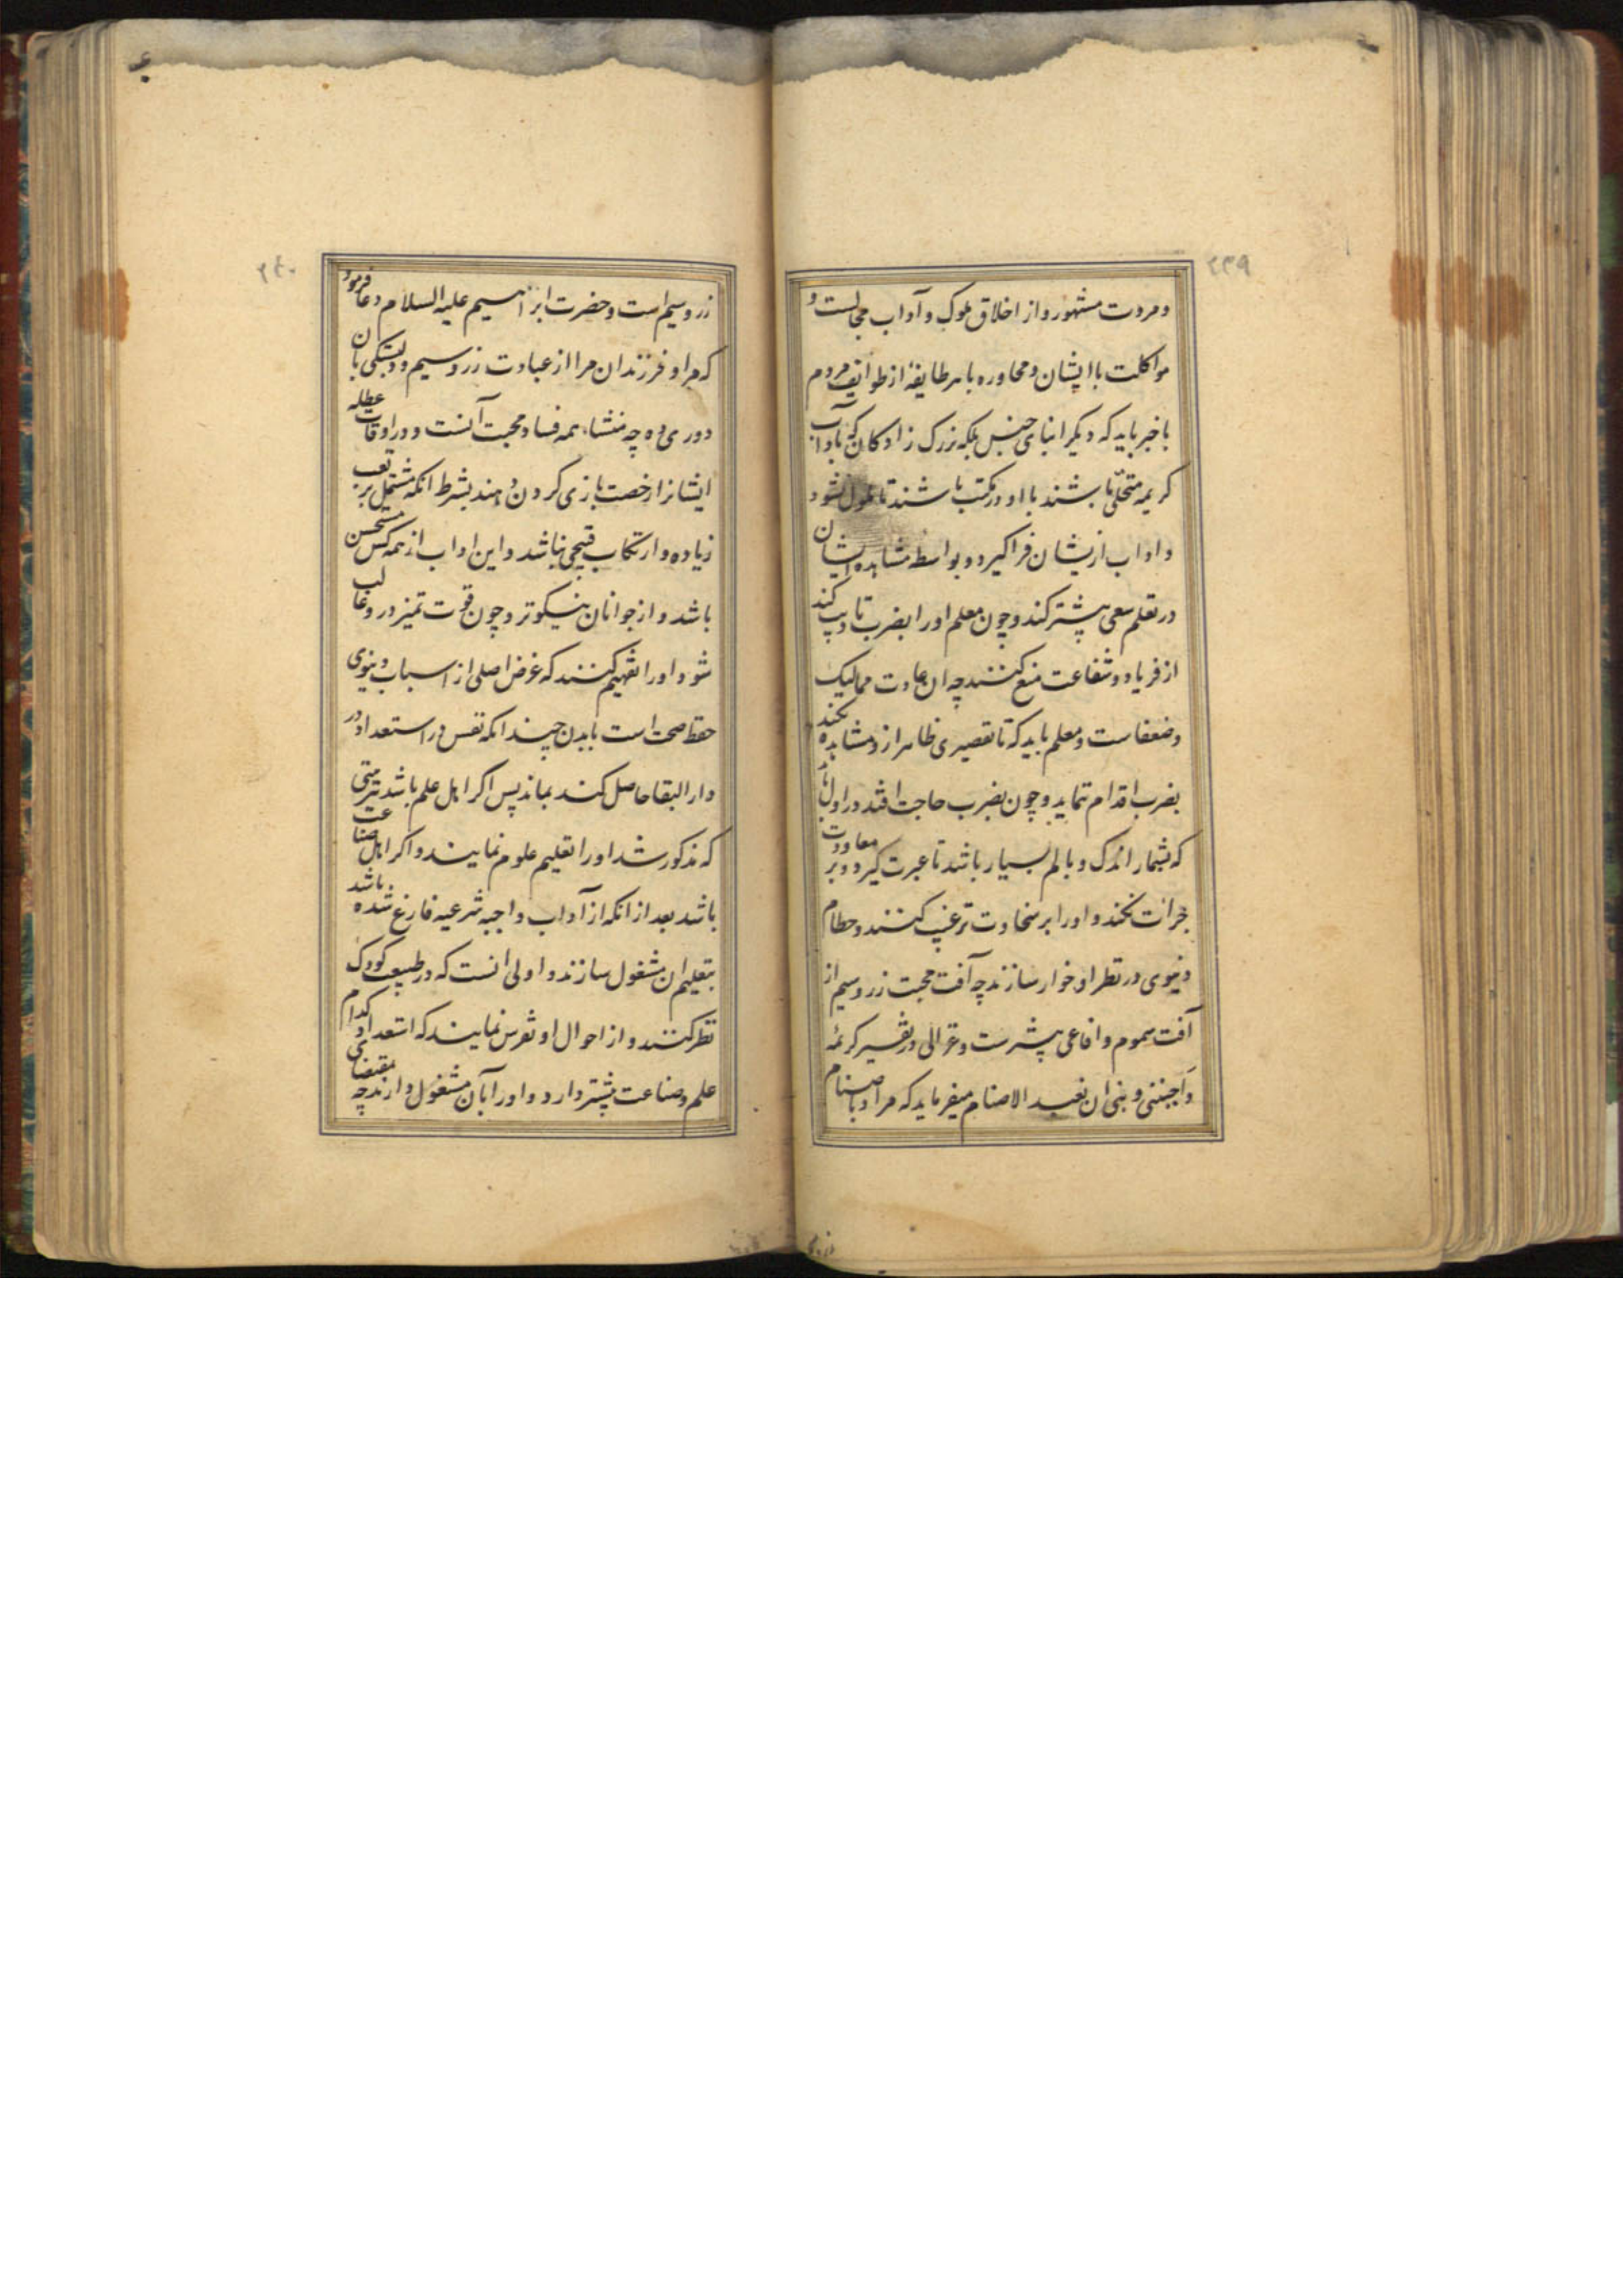 ۲۳۹
و مروت مشهور و از اخلاق ملوک و آداب مجالست و
مواکلت با ایشان و محاوره با هر طایفهٔ از طوایف مردم
با خبر باید که دیگر ابنای جنس بلکه بزرک زادکان که بآداب
کریمه متحلی باشند با او در مکتب باشند تا ملول نشود
و اداب ازیشان فرا کیرد و بواسطه مشاهده ایشان
در تعلم سعی پیشتر کند و چون معلم او را بضرب تادیب کند
از فریاد و شفاعت منع کنند چه ان عادت ممالیک
و ضعفاست و معلم باید که تا تقصیری ظاهر ازو مشاهده نکند
بضرب اقدام ننماید و چون بضرب حاجت افتد در اول
که بشمار اندک و بالم بسیار باشد تا عبرت کیرد و بر معاودت
جرات نکند و او را بر سخاوت ترغیب کنند و حطام
دنیوی در نظر او خوار سازند چه آفت محبت زر و سیم از
آفت سموم و افاعی پیشرست و غزالی در تفسیر کریمهٔ
وَاجنبنی و بنی ان نعبد الاصنام میفرماید که مراد باصنام
زر و سیم
۲۴۰
زر و سیم است و حضرت ابراهیم علیه السلام دعا فرمود
که مرا و فرزندان مرا از عبادت زر و سیم و دلبستکی بان
دوری ده چه منشاء همه فساد محبت آنست و در اوقات عطله
ایشانرا رخصت بازی کردن دهند بشرط انکه مشتمل بر تعب
زیاده و ارتکاب قبیحی نباشد و این اداب از همه کس مستحسن
باشد و از جوانان نیکوتر و چون قوت تمیز در و غالب
شود او را تفهیم کنند که غرض اصلی از اسباب دنیوی
حفظ صحت است تا بدن چندانکه نفس در استعداد در
دار البقا حاصل کند بماند پس اکر اهل علم باشد بترتیبی
که مذکور شد او را تعلیم علوم نمایند و اکر اهل صناعت
باشد بعد از انکه از آداب واجبه شرعیه فارغ شده باشد
بتعلیم ان مشغول سازند و اولی انست که در طبیعت کودک
نظر کنند و از احوال او تفرس نمایند که استعداد کدام
علم و صناعت پیشتر دارد و او را بآن مشغول دارند چه مقتضای